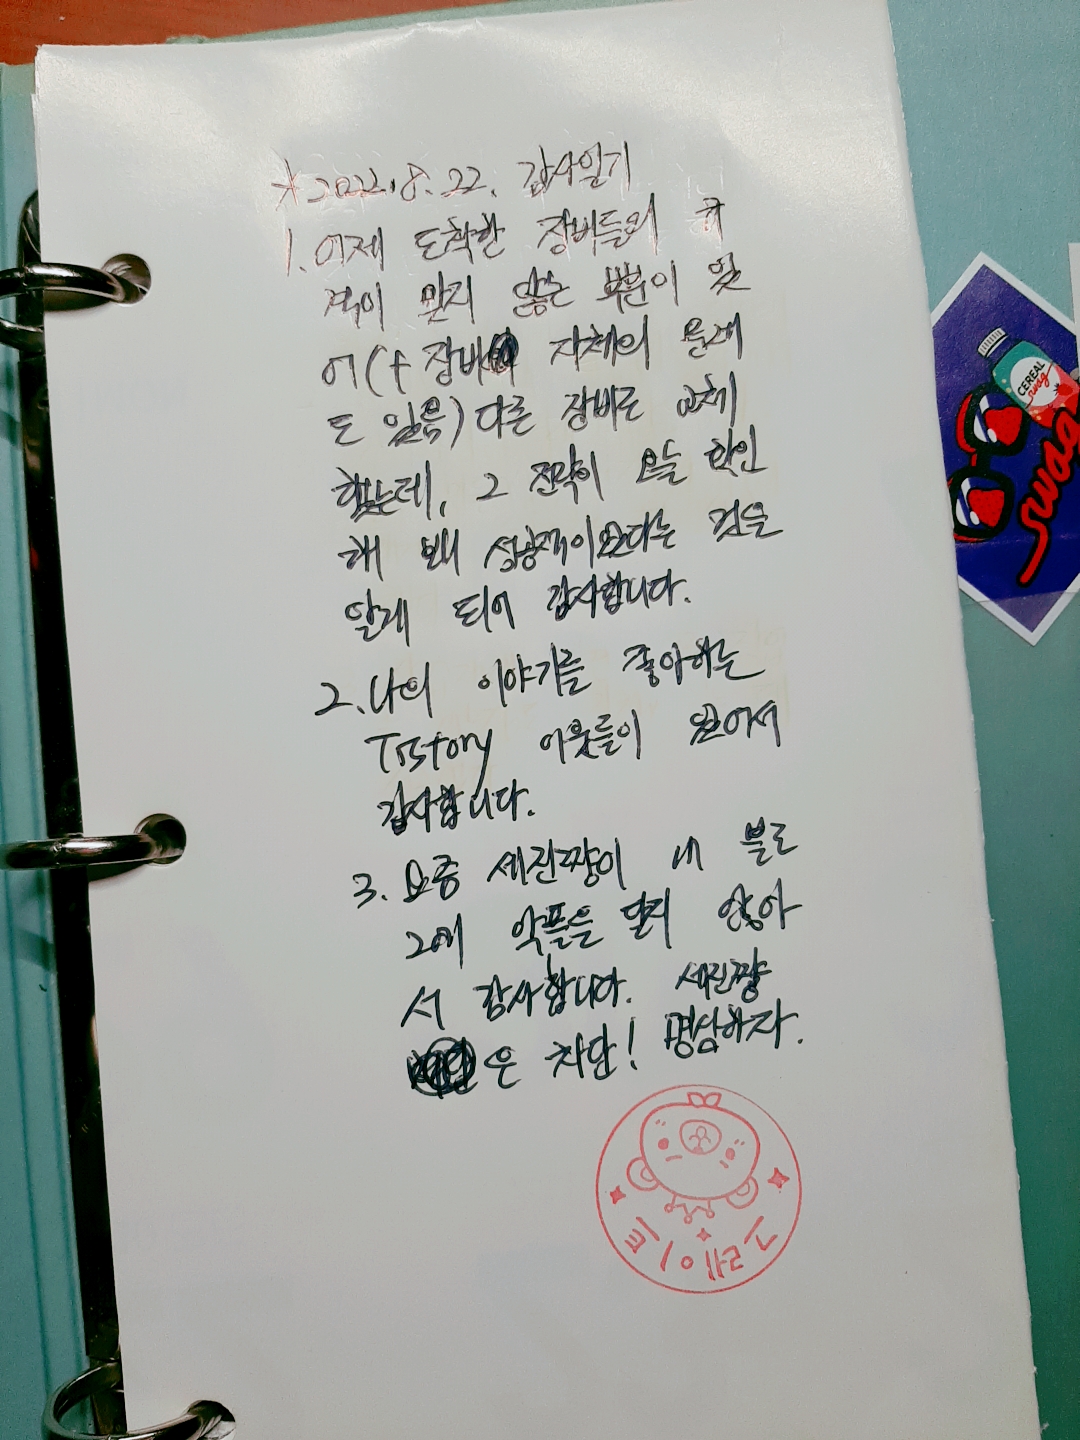 *2022.8.22. 감사일기
1. 어제 도착한 장비들의 규
격이 맞지 않는 부분이 있
어(+장비 자체의 문제
도 있음) 다른 장비로 교체
했는데, 그 전략이 오늘 확인
해 보니 성공적이었다는 것을
알게 되어 감사합니다.
2. 나의 이야기를 좋아하는
Tistory 이웃들이 있어서
감사합니다.
3. 요즘 세진짱이 내 블로
그에 악플을 달지 않아
서 감사합니다. 세진짱
은 차단! 명상하자.
그레이트
CEREAL
swag
swag